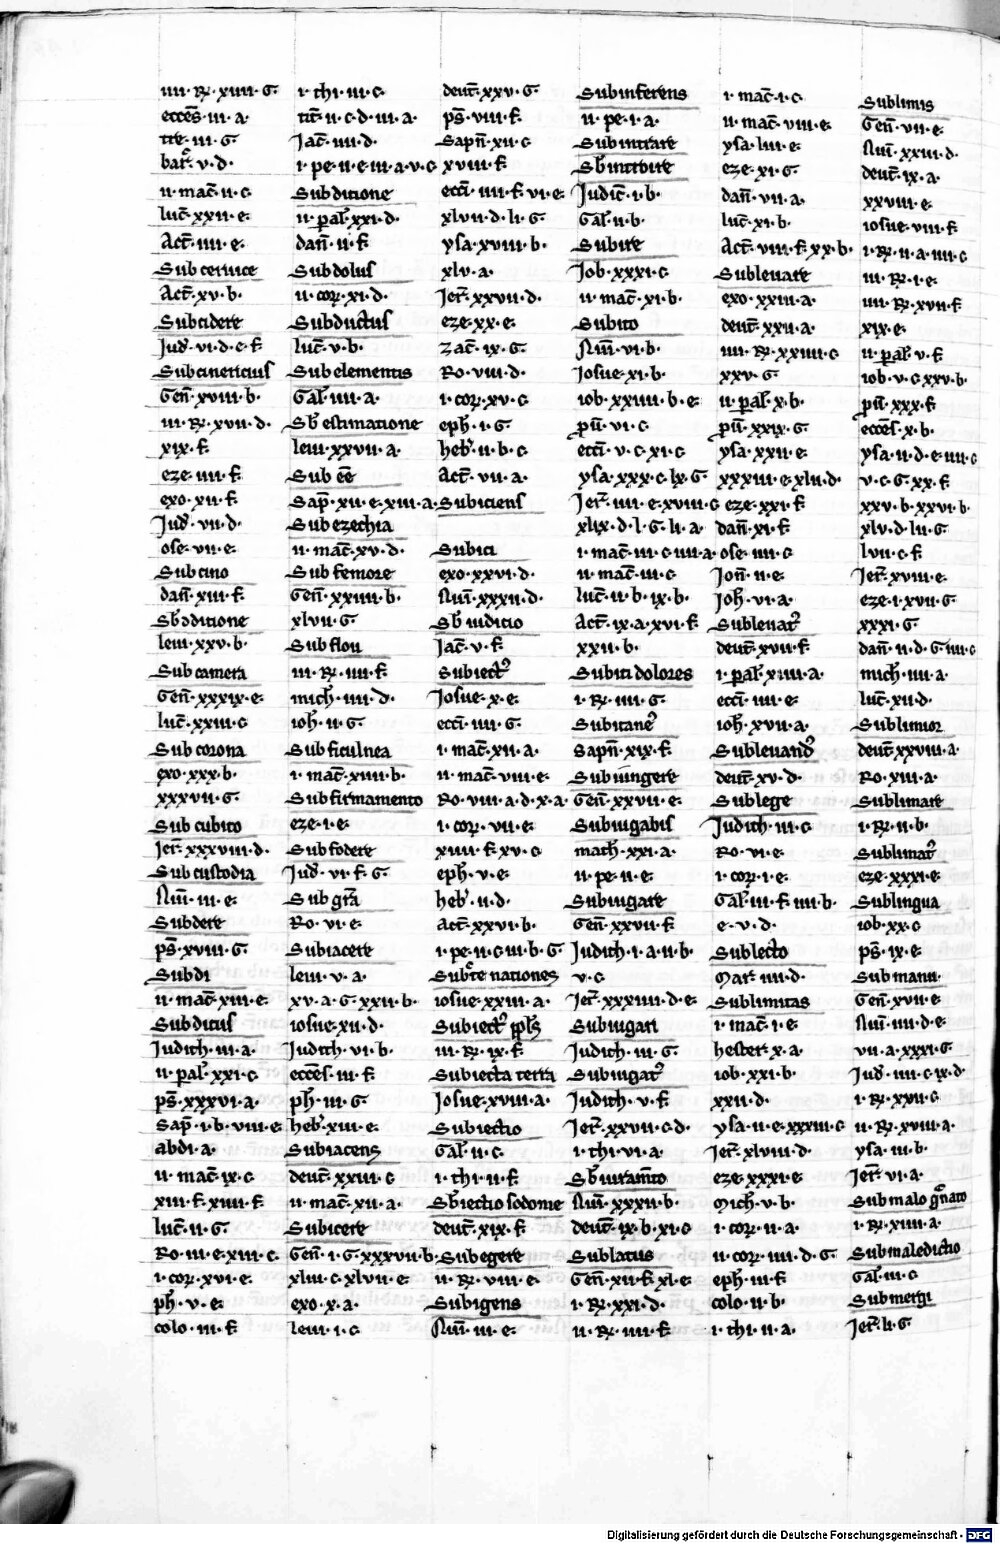 iiii · R͞x · xviii · G
ecc͞es · iii · a ·
tre · iii · G
bar͛ · v · d ·
ii · mac͞ · ii · c
luc͞ · xxii · e ·
Act͞ · iiii · e ·
Sub cervice
Act͞ · xv · b ·
Subcidere
Jud͛ · vi · d · e · f
Subcinericius
Gen͞ · xviii · b ·
iii · R͞x · xvii · d ·
xix · f
eze · iiii · f
exo · xii · f
Jud͛ · vii · d ·
ose · vii · e ·
Sub cino
dan͞ · xiii · f
Sb͛ ditione
levi · xxv · b ·
Sub camera
Gen͞ · xxxix · e ·
luc͞ · xxiii · c
Sub corona
exo · xxx · b ·
xxxvii · G ·
Sub cubito
Jer͞ · xxxviii · d ·
Sub custodia
Nu͞ · iii · e ·
Subdere
ps͞ · xviii · G
Subdi
ii · mac͞ · xiii · e
Subditus
Judith · iii · a ·
ii · pal͛ · xxi · c
ps͞ · xxxvi · a ·
Sap͞ · i · b · viii · e
abdi · a ·
ii · mac͞ · ix · c
xiii · f · xiiii · f
luc͞ · ii · G ·
Ro · iii · e · xiii · c
i · cor͛ · xvi · e ·
ph͛ · v · e ·
colo · iii · f
i · thi · iii · c
tit͞ · ii · c · d · iii · a ·
Jac͞ · iiii · d ·
i · pe · ii · e · iii · a · v · c
Sub ditione
ii · pal͛ · xxi · d ·
dan͞ · ii · f
Sub dolus
ii · cor͛ · xi · d ·
Subductus
luc͞ · v · b ·
Sub elementis
Gal͛ · iiii · a ·
Sb͛ estimatione
levi · xxvii · a ·
Sub e͞e
Sap͞ · xii · e · xiii · a ·
Sub ezechia
ii · mac͞ · xv · d ·
Sub femore
Gen͞ · xxiiii · b ·
xlvii · G
Sub flou
iii · R͞x · iiii · f
mich · iiii · d ·
ioh͛ · ii · G
Sub ficulnea
i · mac͞ · xiiii · b ·
Sub firmamento
eze · i · e ·
Sub fodere
Jud͛ · vi · f · G
Sub gr͞a
Ro · vi · e ·
Subiacere
levi · v · a ·
xv · a · G · xxii · b ·
iosue · xii · d ·
Judith · vi · b ·
ecc͞es · iii · f ·
ph͛ · iii · G
heb͛ · xiii · e ·
Subiacens
deut͞ · xxvi · c
ii · mac͞ · xii · a ·
Subicere
Gen͞ · i · G · xxxvii · b
xliii · c · xlvii · e
exo · x · a ·
levi · i · c
deut͞ · xxv · G
ps͞ · viii · f
Sapn͞ · xii · c
xviii · f
ecci͞ · iiii · f · vi · e ·
xlvii · d · li · G
ysa · xviii · b ·
xlv · a ·
Jer͞ · xxvii · d ·
eze · xx · e ·
zac͞ · ix · G ·
Ro · viii · d ·
i · cor͛ · xv · c
eph͛ · i · G
heb͛ · ii · b · c
Act͞ · vii · a ·
Subiciens
Subici
exo · xxvi · d ·
Nu͞ · xxxii · d ·
Sb͛ iudicio
Jac͞ · v · f
Subiect᷒
Josue · x · e ·
ecci͞ · iiii · G ·
i · mac͞ · xii · a ·
ii · mac͞ · viii · e
Ro · viii · a · d · x · a ·
i · cor͛ · vii · e
xiiii · f · xv · c
eph͛ · v · e ·
heb͛ · ii · d ·
act͞ · xxvi · b ·
i · pe · ii · c · iii · b · G
Sub͛te nationes
iosue · xxiii · a ·
Subiect᷒ pp͛ls
iii · R͞x · ix · f
Subiecta terra
Josue · xviii · a ·
Subiectio
Gal͛ · ii · c ·
i · thi · ii · f
Sb͛iectio sodome
deut͞ · xix · f
Subegere
ii · R͞x · viii · e ·
Subigens
Nu͞ · iii · e ·
Subinferens
ii · pe · i · a ·
Subintrare
Sb͛introire
Judic͞ · i · b ·
Gal͛ · ii · b ·
Subire
Job · xxxi · c
ii · mac͞ · xi · b ·
Subito
Nu͞ · vi · b ·
Josue · xi · b ·
iob · xxiiii · b · e
pu͞ · vi · c
ecci͞ · v · c · xi · c
ysa · xxx · c · lx · G
Jer͞ · iiii · e · xviii · c
xlix · d · l · G · li · a ·
i · mac͞ · iii · c · iiii · a ·
ii · mac͞ · iii · c
luc͞ · ii · b · ix · b ·
Act͞ · ix · a · xvi · f
xxii · b ·
Subiti dolores
i · R͞x · iiii · G
Subitane᷒
Sapn͞ · xix · f
Subiungere
Gen͞ · xxvii · e ·
Subiugabis
math · xxi · a ·
ii · pe · ii · e ·
Subiugare
Gen͞ · xxvii · f
Judith · i · a · ii · b ·
v · c
Jer͞ · xxxiiii · d · e
Subiugati
Judith · iii · G ·
Subiugat᷒
Judith · v · f
Jer͞ · xxvii · c · d ·
i · thi · vi · a ·
Sb͛ iuram͞to
Nu͞ · xxxii · b ·
deut͞ · ix · b · xi · c
Sublatus
Gen͞ · xii · f · xl · e ·
i · R͞x · xxi · d ·
ii · R͞x · iiii · f
i · mac͞ · i · c
ii · mac͞ · viii · e
ysa · liii · e
eze · xi · G
dan͞ · vii · a ·
luc͞ · xi · b ·
Act͞ · viii · f · xx · b ·
Sublevare
exo · xxiii · a ·
deut͞ · xxii · a ·
iiii · R͞x · xxiiii · c
xxv · G
ii · pal͛ · x · b ·
pu͞ · xxix · G
ysa · xxii · e ·
xxxvii · e · xlvi · d ·
eze · xxi · f
dan͞ · xi · f
ose · iiii · c
Jon͞ · ii · e ·
Joh͛ · vi · a ·
Sublevat᷒
deut͞ · xvii · f
i · pal͛ · xiiii · a ·
ecci͞ · iiii · e ·
ioh͛ · xvii · a ·
Sublevand᷒
deut͞ · xv · d ·
Sublege
Judith · iii · c
Ro · vi · e ·
i · cor͛ · i · e ·
Gal͛ · iii · f · iiii · b ·
e · v · d ·
Sublecto
Mar͛ · iiii · d ·
Sublimitas
i · mac͞ · i · e
hester · x · a ·
iob · xxi · b ·
xxii · d ·
ysa · ii · e · xxxiii · c
Jer͞ · xlviii · d ·
eze · xxxi · e
Mich · v · b ·
i · cor͛ · ii · a ·
ii · cor͛ · iiii · d · G
eph͛ · iii · f
colo · ii · b ·
i · thi · ii · a ·
Sublimis
Gen͞ · vii · e ·
Nu͞ · xxiii · d ·
deut͞ · ix · a ·
xxviii · e ·
iosue · viii · f
i · R͞x · ii · a · iiii · c
iii · R͞x · i · e ·
iiii · R͞x · xvii · f
xix · e ·
ii · pal͛ · v · f
iob · v · c · xxv · b ·
pu͞ · xxx · f
ecc͞es · x · b ·
ysa · ii · d · e · iiii · c
v · c · G · xx · f
xxv · b · xxvi · b ·
xlv · d · lii · G
lvii · c · f
Jer͞ · xviii · e ·
eze · i · xvii · G
xxxi · G
dan͞ · ii · d · G · iiii · c
mich͛ · iiii · a ·
luc͞ · xii · d ·
Sublimior
deut͞ · xxviii · a ·
Ro · xiii · a ·
Sublimare
i · R͞x · ii · b ·
Sublimat᷒
eze · xxxi · e ·
Sublingua
iob · xx · c
ps͞ · ix · e ·
Sub manu
Gen͞ · xvii · e
Nu͞ · iiii · d · e ·
vii · a · xxxi · G
Jud͛ · iiii · c · ix · d ·
i · R͞x · xxvi · c
ii · R͞x · xviii · a ·
ysa · iii · b ·
Jer͞ · vi · a ·
Sub malo g͛nato
i · R͞x · xiiii · a ·
Submaledicto
Gal͛ · iii · c
Submergi
Jer͞ · li · G
Digitalisierung gefördert durch die Deutsche Forschungsgemeinschaft - DFG